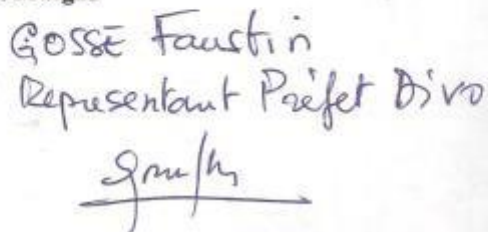 GOSSE Faustin
Representant Préfet Divo